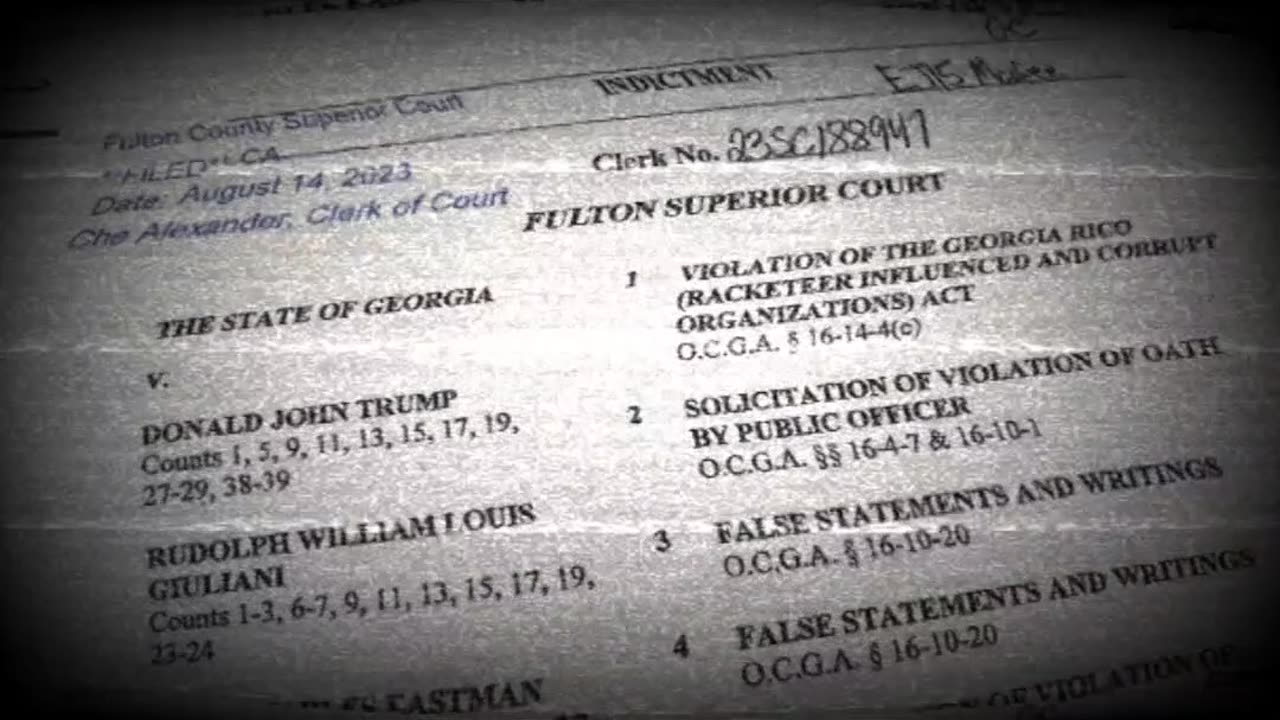 INDICTMENT
Fulton County Superior Court
***FILED***LCA
Date: August 14, 2023
Che Alexander, Clerk of Court
Clerk No. 23SC188947
FULTON SUPERIOR COURT
THE STATE OF GEORGIA
v.
DONALD JOHN TRUMP
Counts 1, 5, 9, 11, 13, 15, 17, 19,
27-29, 38-39
RUDOLPH WILLIAM LOUIS
GIULIANI
Counts 1-3, 6-7, 9, 11, 13, 15, 17, 19,
23-24
EASTMAN
1 VIOLATION OF THE GEORGIA RICO
(RACKETEER INFLUENCED AND CORRUPT
ORGANIZATIONS) ACT
O.C.G.A. § 16-14-4(c)
2 SOLICITATION OF VIOLATION OF OATH
BY PUBLIC OFFICER
O.C.G.A. §§ 16-4-7 & 16-10-1
3 FALSE STATEMENTS AND WRITINGS
O.C.G.A. § 16-10-20
4 FALSE STATEMENTS AND WRITINGS
O.C.G.A. § 16-10-20
OF VIOLATION OF